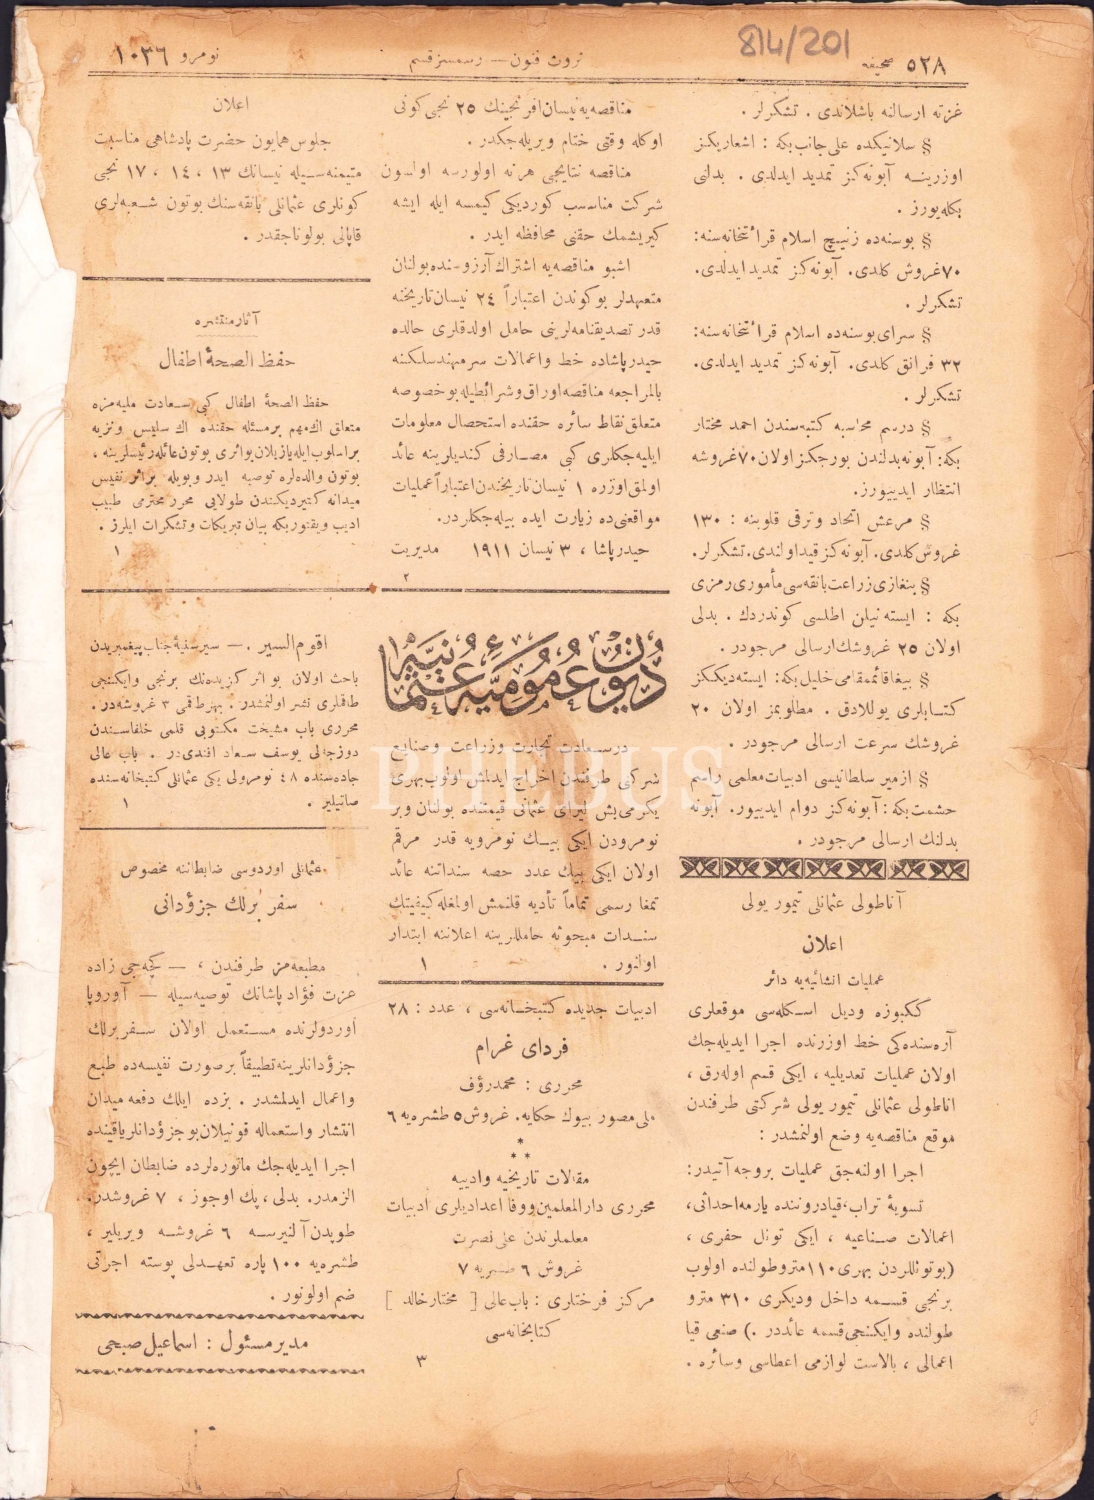 ٥٢٨ صحيفه
ثروت فنون — رسمسز قسم
نومرو ١٠٣٦
814/201
غزته ارسالنه باشلاندی . تشكرلر .
§ سلانيكده علی جانب بكه : اشعاريكز
اوزرينه آبونه‌كز تمديد ايدلدی . بدلنی
بكله‌يورز .
§ بوسنه‌ده زنيچ اسلام قرائتخانه‌سنه :
٧٠ غروش كلدی. آبونه‌كز تمديد ايدلدی.
تشكرلر .
§ سرای بوسنه‌ده اسلام قرائتخانه‌سنه :
٣٢ فرانق كلدی. آبونه‌كز تمديد ايدلدی.
تشكرلر .
§ درسم محاسبه كتبه‌سندن احمد مختار
بكه: آبونه بدلندن بورجكز اولان ٧٠ غروشه
انتظار ايدييورز.
§ مرعش اتحاد وترقی قلوبنه : ١٣٠
غروش كلدی. آبونه‌كز قيد اولندی. تشكرلر.
§ بنغازی زراعت بانقه‌سی مأموری رمزی
بكه : ايسته‌نيلن اطلسی كوندردك . بدلی
اولان ٢٥ غروشك ارسالی مرجودر .
§ بيغا قائممقامی خليل بكه: ايسته‌ديككز
كتابلری يوللادق . مطلوبمز اولان ٢٠
غروشك سرعت ارسالی مرجودر .
§ ازمير سلطانيسی ادبيات معلمی راسم
حشمت بكه : آبونه‌كز دوام ايدييور. آبونه
بدلنك ارسالی مرجودر .
آناطولی عثمانلی تيمور يولی
اعلان
عمليات انشائيه‌يه دائر
ككبوزه وديل اسكله‌سی موقعلری
آره‌سنده‌كی خط اوزرنده اجرا ايديله‌جك
اولان عمليات تعديليه ، ايكی قسم اوله‌رق ،
اناطولی عثمانلی تيمور يولی شركتی طرفندن
موقع مناقصه‌يه وضع اولنمشدر :
اجرا اولنه‌جق عمليات بروجه آتيدر:
تسويۀ تراب، قيادروننده يارمه احداثی،
اعمالات صناعيه ، ايكی تونل حفری ،
(بوتونللردن بهری ١١٠ مترو طولنده اولوب
برنجی قسمه داخل وديكری ٣١٠ مترو
طولنده وايكنجی قسمه عائددر .) صنعی قيا
اعمالی ، بالاست لوازمی اعطاسی وسائره .
مناقصه‌يه نيسان افرنجينك ٢٥ نجی كونی
اوكله وقتی ختام ويريله‌جكدر .
مناقصه نتايجی هرنه اولورسه اولسون
شركت مناسب كورديكی كيمسه ايله ايشه
كيريشمك حقنی محافظه ايدر .
اشبو مناقصه‌يه اشتراك آرزوسنده بولنان
متعهدلر بوكوندن اعتباراً ٢٤ نيسان تاريخنه
قدر تصديقنامه‌لرينی حامل اولدقلری حالده
حيدر پاشاده خط واعمالات سرمهندسلكنه
بالمراجعه مناقصه اوراق وشرائطيله بوخصوصه
متعلق نقاط سائره حقنده استحصال معلومات
ايليه‌جكلری كبی مصارفی كنديلرينه عائد
اولمق اوزره ١ نيسان تاريخندن اعتباراً عمليات
مواقعنی‌ده زيارت ايده بيله‌جكلردر.
حيدر پاشا ، ٣ نيسان ١٩١١ مديريت
٢
ديون عموميه عثمانيه
درسعادت تجارت وزراعت وصنايع
شركتی طرفندن اخراج ايدلمش اولوب بهری
يكرمی بش ليرای عثمانی قيمتنده بولنان وبر
نومرودن ايكی بيك نومرويه قدر مرقم
اولان ايكی بيك عدد حصه سنداتنه عائد
تمغا رسمی تماماً تأديه قلنمش اولمغله كيفيتك
سندات مبحوثه حامللرينه اعلاننه ابتدار
اولنور . ١
ادبيات جديده كتبخانه‌سی ، عدد : ٢٨
فردای غرام
محرری : محمد رؤف
ملی مصور بيوك حكايه. غروش ٥ طشره‌يه ٦
* * *
مقالات تاريخيه وادبيه
محرری دارالمعلمين ووفا اعداديلری ادبيات
معلملرندن علی نصرت
غروش ٦ طشريه ٧
مركز فرختاری : باب عالی [ مختار خالد ]
كتابخانه‌سی
٣
اعلان
جلوس همايون حضرت پادشاهی مناسبت
متيمنه‌سيله نيسانك ١٣ ، ١٤ ، ١٧ نجی
كونلری عثمانلی بانقه‌سنك بوتون شعبه‌لری
قاپالی بولوناجقدر .
آثار منتشره
حفظ الصحۀ اطفال
حفظ الصحۀ اطفال كبی سعادت مليه‌مزه
متعلق اك مهم بر مسئله حقنده اك سليس ونزيه
بر اسلوب ايله يازيلان بو اثری بوتون عائله رئيسلرينه ،
بوتون والده‌لره توصيه ايدر وبويله بر اثر نفيس
ميدانه كتيرديكندن طولايی محرر محترمی طبيب
اديب ويقتور بكه بيان تبريكات وتشكرات ايلرز .
١
اقوم السير . — سير سنيۀ جناب پيغمبريدن
باحث اولان بو اثر كزيده‌نك برنجی وايكنجی
طاقملری نشر اولنمشدر . بهر طقمی ٣ غروشه‌در .
محرری باب مشيخت مكتوبی قلمی خلفاسندن
دوزجه‌لی يوسف سعاد افندی‌در . باب عالی
جاده‌سنده ٤٨ نومرولی يكی عثمانلی كتبخانه‌سنده
صاتيلير . ١
عثمانلی اوردوسی ضابطاننه مخصوص
سفر بُرلك جزؤدانی
مطبعه‌مز طرفندن ، — كچه‌جی زاده
عزت فؤاد پاشانك توصيه‌سيله — آوروپا
اوردولرنده مستعمل اولان سفربرلك
جزؤدانلرينه تطبيقاً بر صورت نفيسه‌ده طبع
واعمال ايدلمشدر . بزده ايلك دفعه ميدان
انتشار واستعماله قونيلان بو جزؤدانلر ياقينده
اجرا ايديله‌جك مانوره‌لرده ضابطان ايچون
الزمدر. بدلی ، پك اوجوز ، ٧ غروشدر.
طوپدن آلنيرسه ٦ غروشه ويريلير ،
طشره‌يه ١٠٠ پاره تعهدلی پوسته اجرتی
ضم اولونور .
مدير مسئول : اسماعيل صبحی
PHEBUS